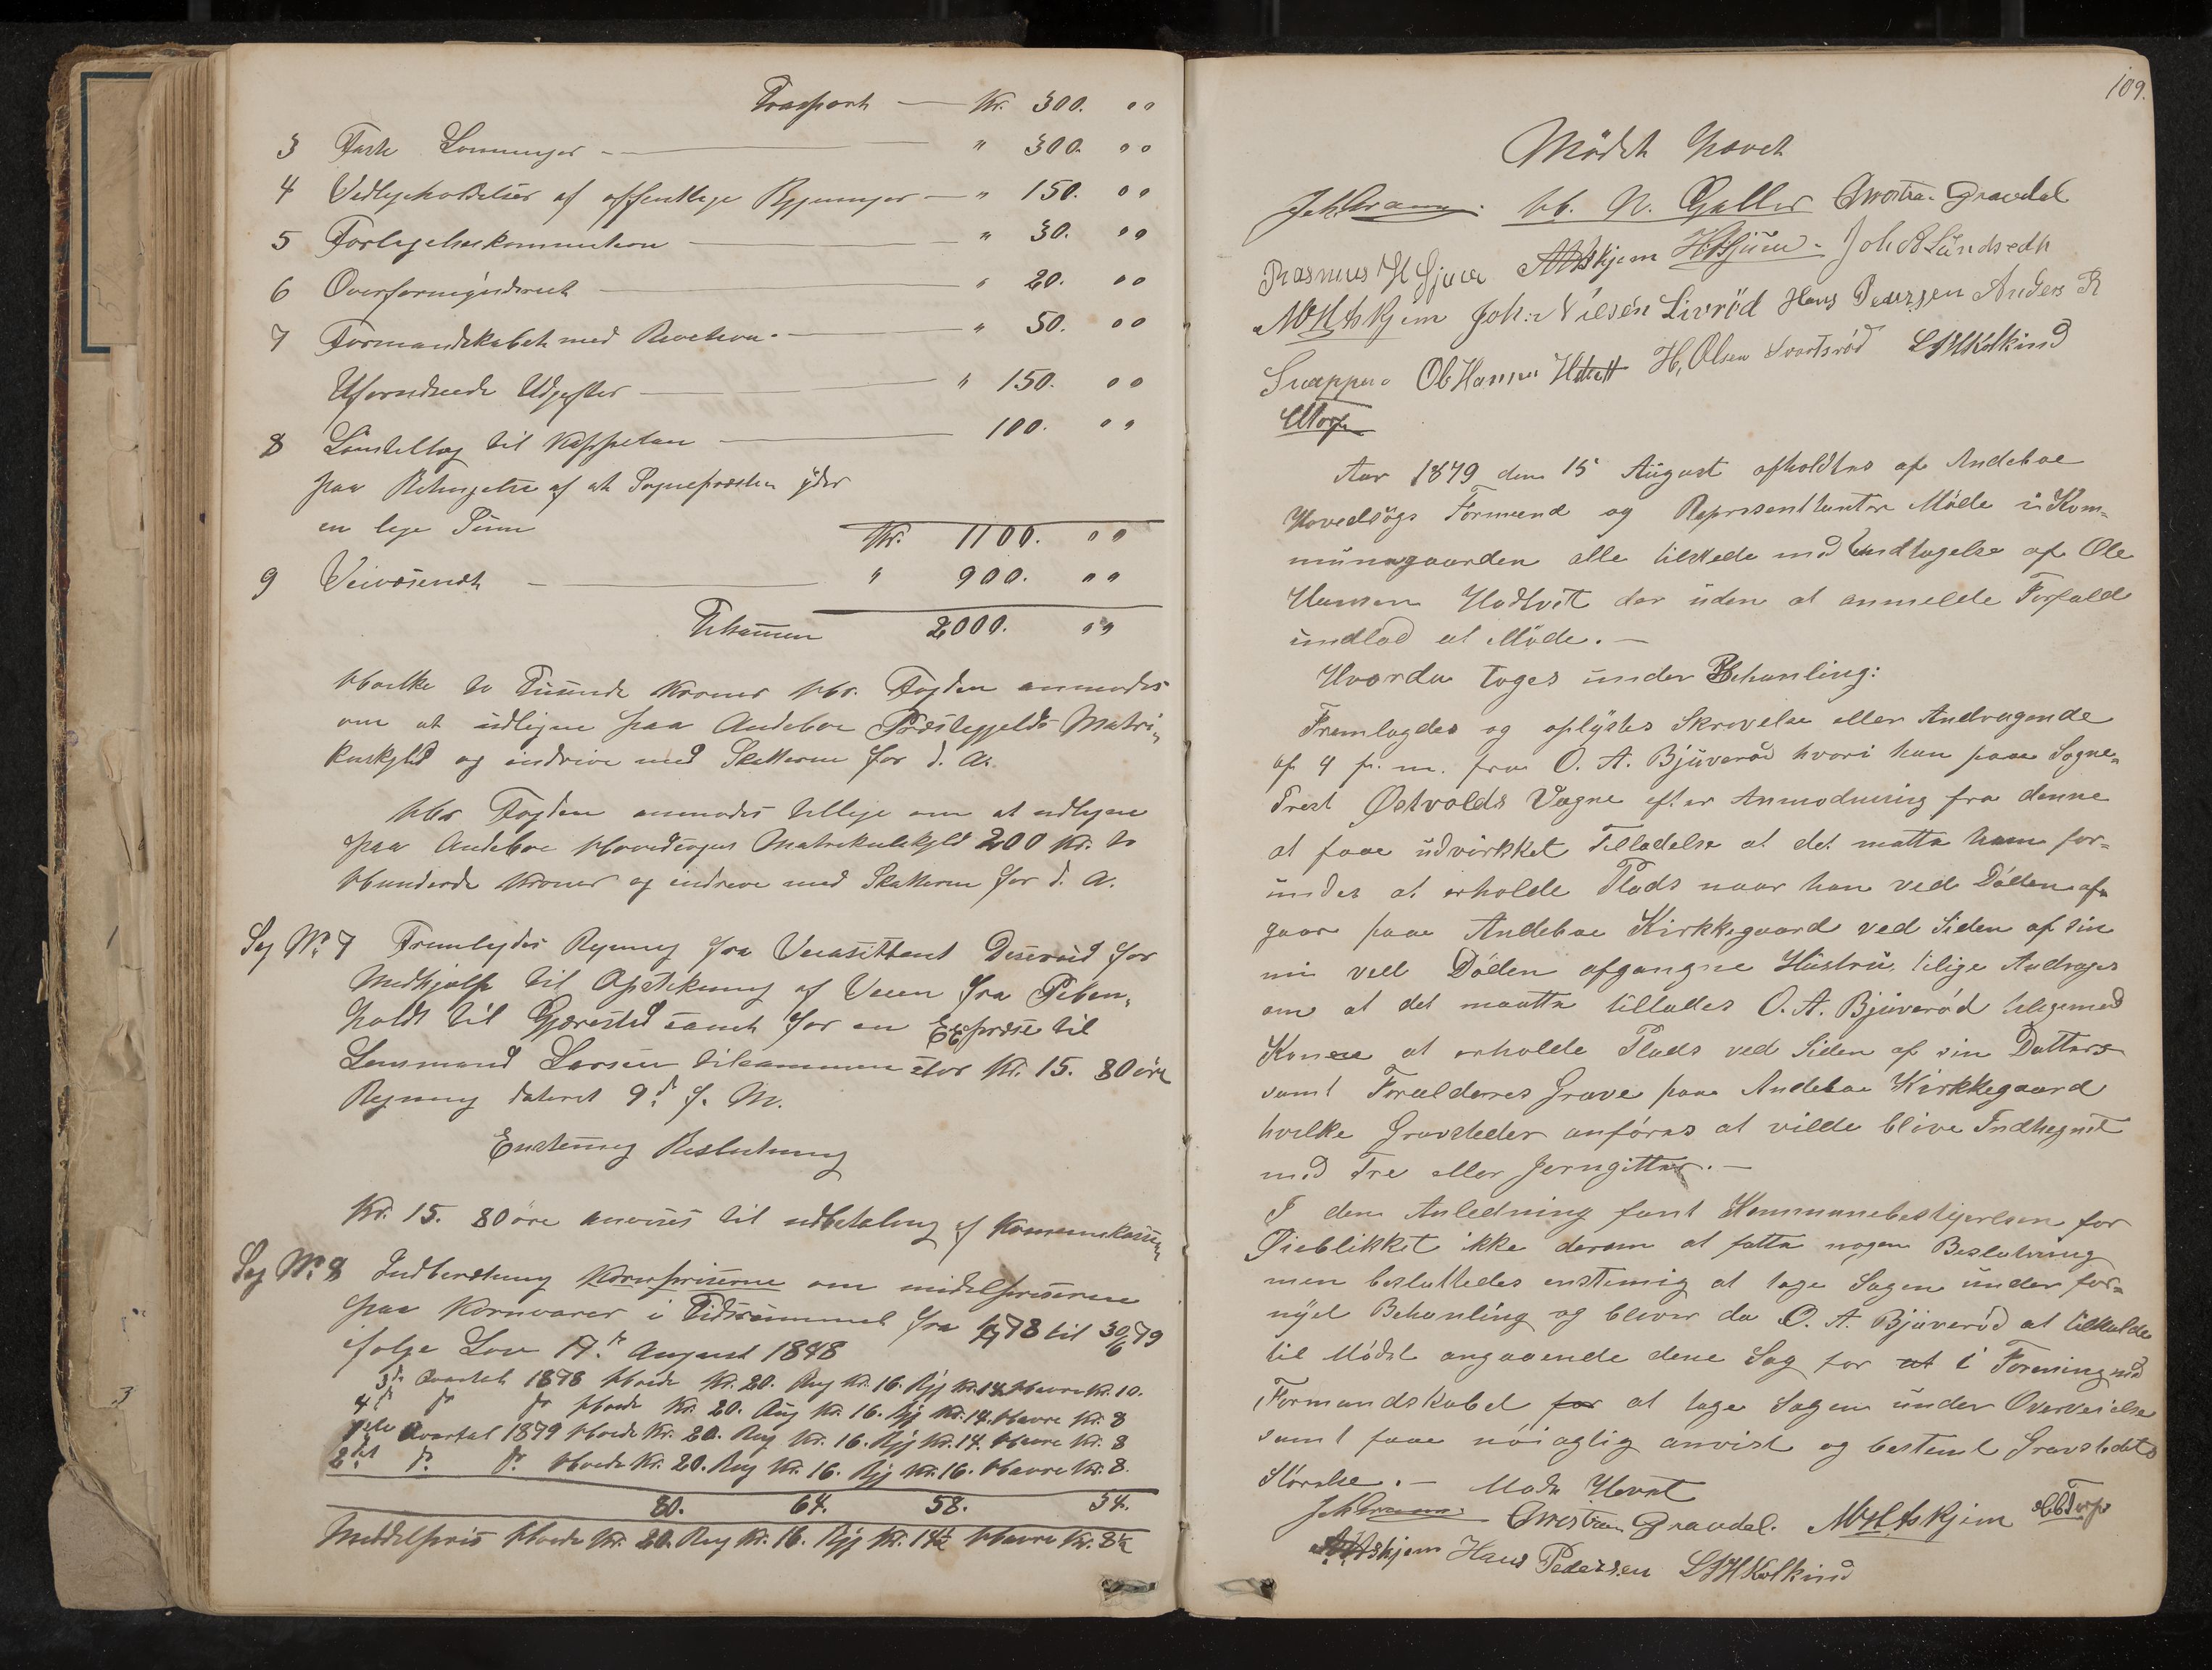 Transport — Kr. 300. 00
3 Faste Lønninger — " 300. 00
4 Vedligeholdelse af offentlige Bygninger — " 150. 00
5 Forligelseskommission — " 30. 00
6 — " 20. 00
7 Formandskabet med Revision — " 50. 00
Uforudseede Udgifter — " 150. 00
8 Løntillæg til Kappelan — 100. 00
paa Betingelse af at Sognepræsten yder
en lige Sum
Kr. 1100. 00
9 Veivæsenet — " 900. 00
Tilsamen 2000. 00
Hvilke to Tusinde Kroner Hr. Fogden anmodes
om at udligne paa Andebo Præstegjelds Matri-
kulskyld og inddrive med Skatterne for d. A.
Hr. Fogden anmodes tillige om at udligne
paa Andebo Hovedsogns Matrikulskyld 200 Kr. to
Hundrede Kroner og inddrive med Skatterne for d. A.
Sag No. 7 Fremlagdes Regning fra for
Medhjælp til af Veien fra
til samt for en Expresse til
Lensmand Larsen tilsammen stor Kr. 15. 80 øre
Regning dateret 9d. f. M.
Enstemig Beslutning
Kr. 15. 80 øre anvises til udbetaling af Kommunekassen
Sag No. 8 Indberetning Kornpriserne om midelpriserne
paa Kornvarer i Tidsrummet fra 1/7 78 til 30/6 79
følge Lov 17de August 1848
3d Qvartal 1878 Hvede Kr. 20. Rug Kr. 16. Byg Kr. 14. Havre Kr. 10.
4d do do Hvede Kr. 20. Rug Kr. 16. Byg Kr. 14. Havre Kr. 8
1ste Qvartal 1879 Hvede Kr. 20. Rug Kr. 16. Byg Kr. 14. Havre Kr. 8
2det do do Hvede Kr. 20. Rug Kr. 16. Byg Kr. 16. Havre Kr. 8.
80. 64. 58. 34.
Meddelpris Hvede Kr. 20. Rug Kr. 16. Byg Kr. 14½ Havre Kr. 8½
109.
Mødet hævet
Christian Gravdal
Rasmus H Gjura Askjem Joh
M H Askjem Joh: Nilsen Livrød Hans Pedersen Anders R
Ol Hansen H, Olsen Svartsrød Kolkind
Aar 1879 den 15 August afholdtes af Andeboe
Hovedsogs Formænd og Representtanter Møde i Kom-
munegaarden alle tilstede med Undtagelse af Ole
Hansen Hodtvit der uden at anmelde Forfald
undlod at Møde. —
Hvorda toges under Behanling:
Fremlagdes og oplystes Skrivelse eller Andragende
af 9 f. m. fra O. A. Bjuverød hvori han paa Sogne-
Prest Østvolds Vegne efter Anmodning fra denne
at faae udvirkket Tilladelse at det matte ham for-
undes at erholde Plads naar han ved Døden af-
gaar paa Andeboe Kirkkegaard ved Siden af sin
nu ved Døden afgangne Hustru, tilige Andrages
om at det maatte tillades O. A. Bjuverød tilligemed
Konen at erholde Plads ved Siden af sin Datters
samt Forældernes Grave paa Andeboe Kirkkegaard
hvilke Gravsteder anføres at vilde blive Indhegnet
med Tre eller Jerngitter. —
I den Anledning fant Kommunebestyrelsen for
Øieblikket ikke derom at fatte nogen Beslutning
men besluttedes enstemig at tage Sagen under for-
nyet Behanling og bliver da O. A. Bjuverød at tilkalde
til Mødet angaaende dene Sag for at i Forening med
Formandskabet for at tage Sagen under Overveielse
samt faae nøiagtig anvist og bestemt Gravstedets
Størelse. — Møde Hævet
Christian Gravdal. M H Askjem
Askjem Hans Pedersen Kolkind